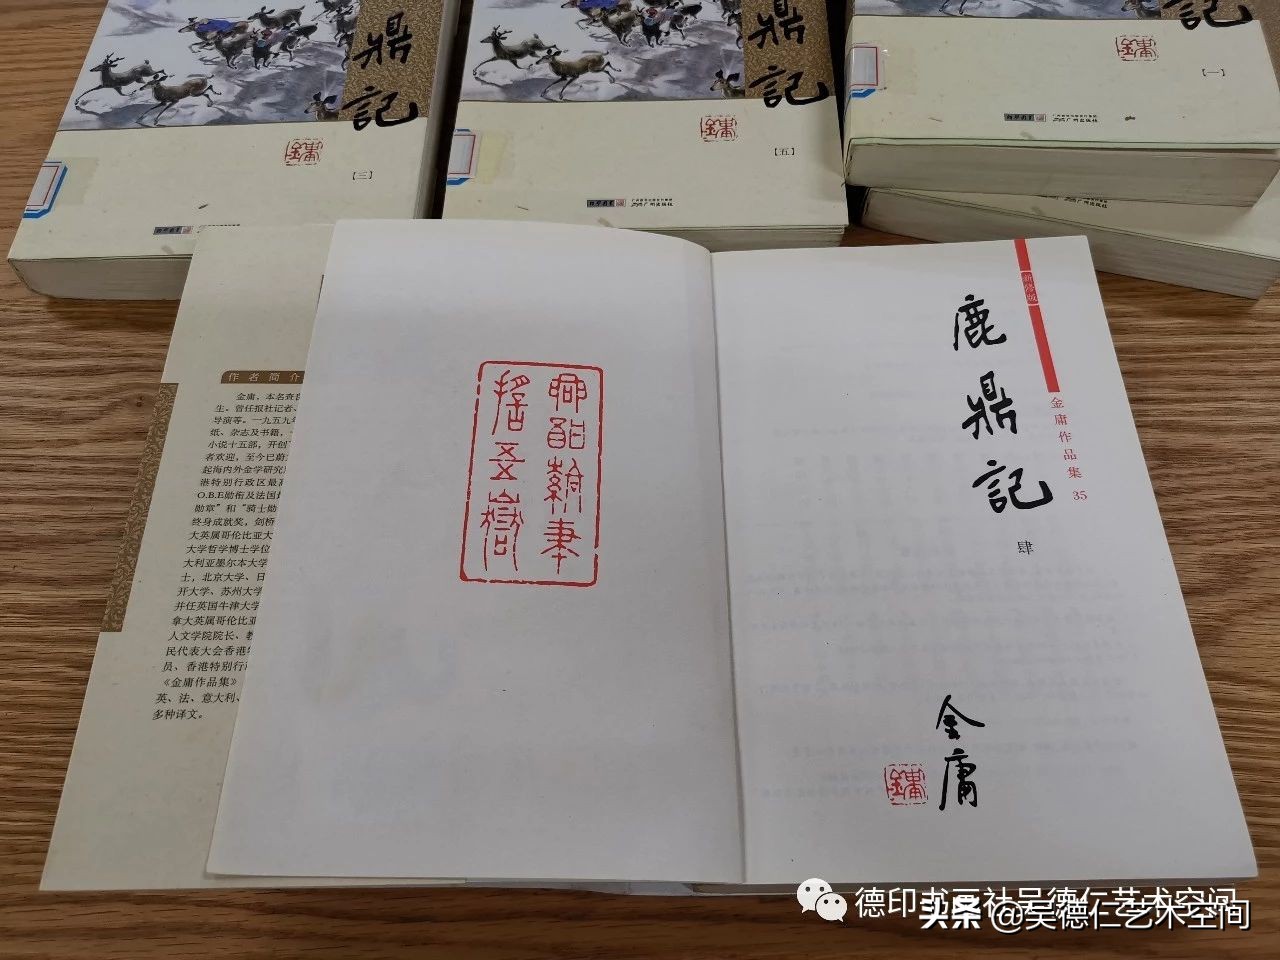 鼎記
【三】
鼎記
【五】
广州出版社
記
【一】
广州出版社
作者简介
金庸，本名查
生，曾任报社记者、
导演等。一九五九年
纸、杂志及书籍，
小说十五部，开创
者欢迎，至今已蔚
起海内外金学研究
港特别行政区最高
O.B.E勋衔及法国
勋章”和“骑士勋
终身成就奖，剑桥
大英属哥伦比亚大
大学哲学博士学位
大利亚墨尔本大学
士，北京大学、日
开大学、苏州大学
并任英国牛津大学
拿大英属哥伦比亚
人文学院院长、教
民代表大会香港特
员、香港特别行政
《金庸作品集》
英、法、意大利、
多种译文。
酣翰筆
搖五嶽
新修版
金庸作品集 35
鹿鼎記
肆
金庸
金庸
德印书画社吴德仁艺术空间
头条 @吴德仁艺术空间